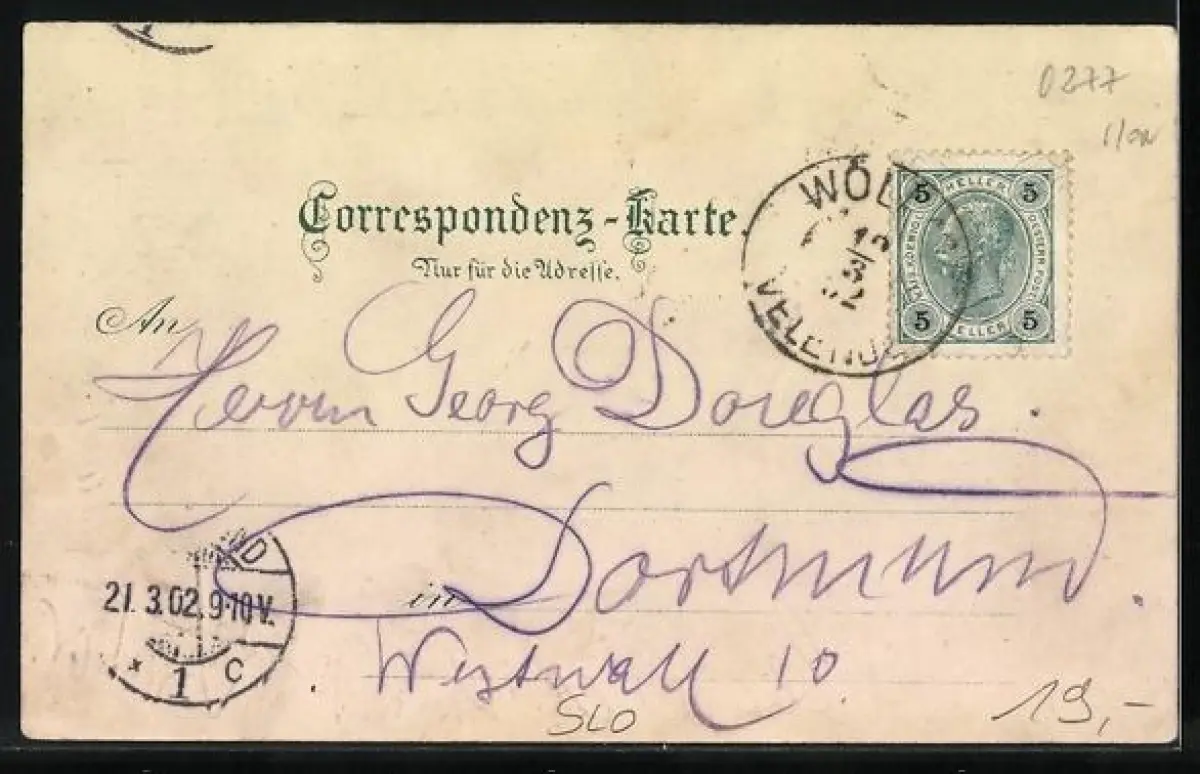 0277
Correspondenz-Karte.
Nur für die Adresse.
An
WÖL
3
VELENJE
5 HELLER 5
5 HELLER 5
Herrn Georg Douglas.
in Dortmund.
Westwall 10
D
21.3.02.9-10V.
* 1 C
SLO
19,-